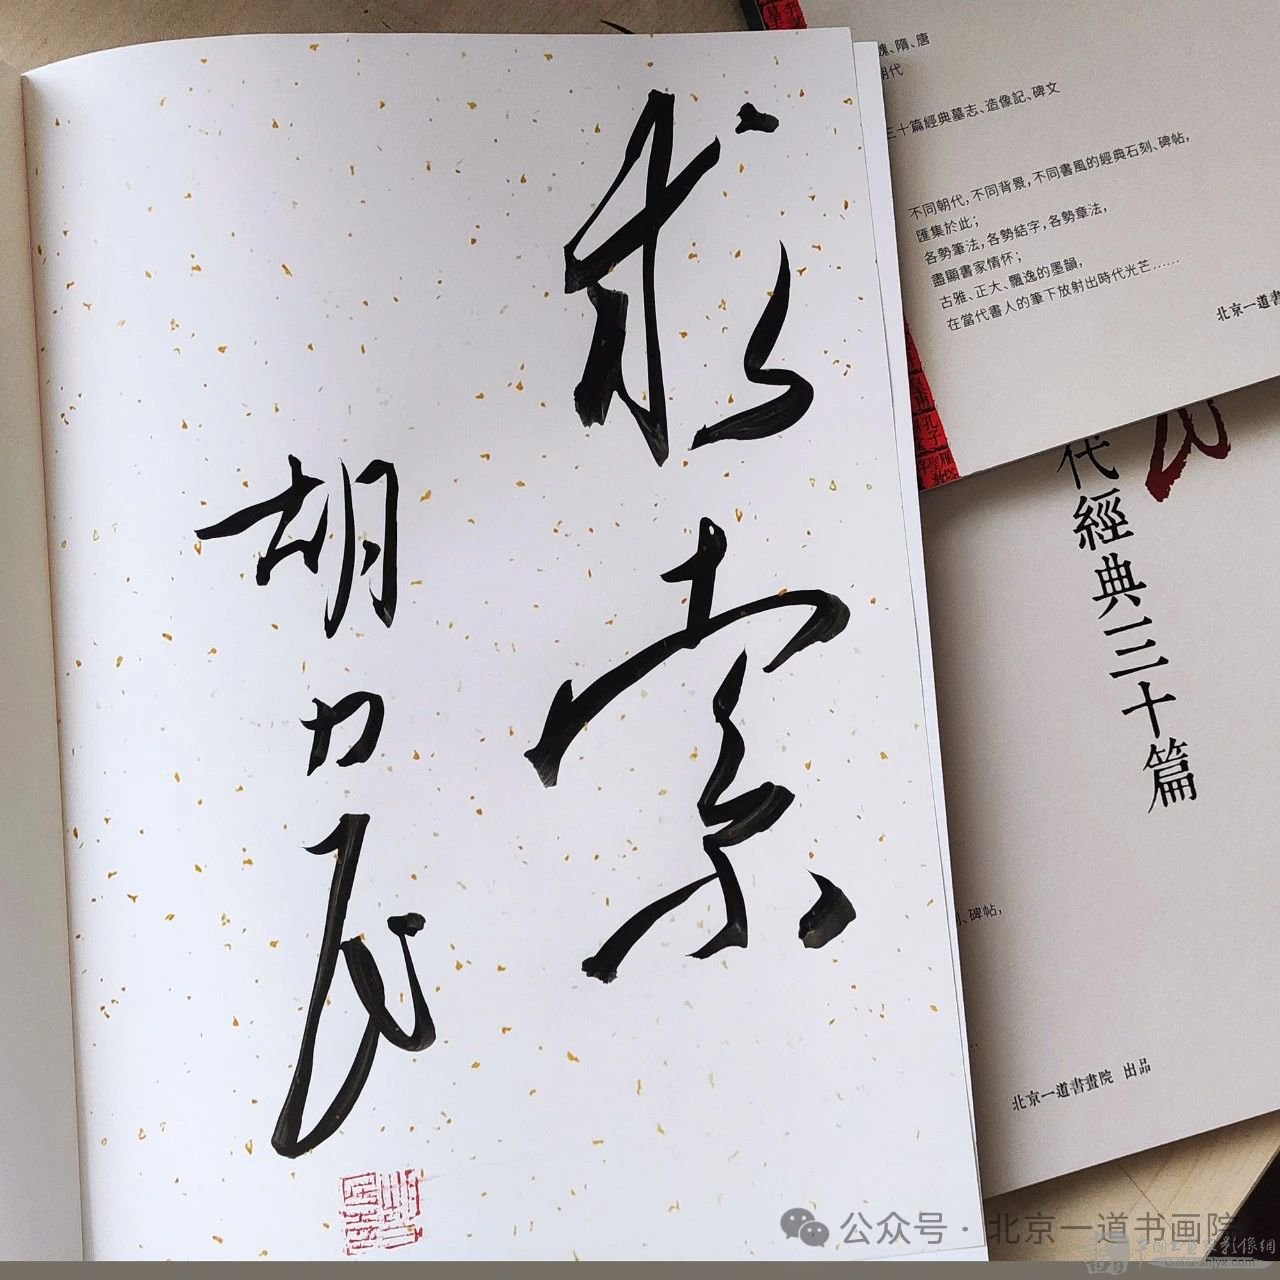 求索
胡力民
魏、隋、唐
朝代
三十篇經典墓志、造像記、碑文
不同朝代,不同背景,不同書風的經典石刻、碑帖,
匯集於此;
各勢筆法,各勢結字,各勢章法,
盡顯書家情怀;
古雅、正大、飄逸的墨韻,
在當代書人的筆下放射出時代光芒……
北京一道書
代經典三十篇
碑帖,
北京一道書畫院 出品
公众号·北京一道书画院